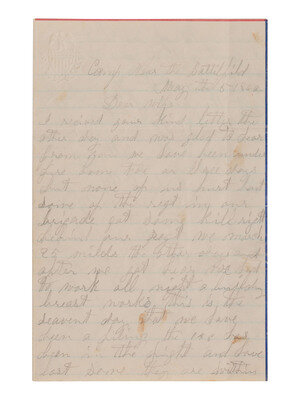 Camp Near the Battlefield
May the 5 186
Dear Wife
I recived your kind letter the
other day and was glad to hear
from you we have been under
fire some two or three days
but none of us hurt but
some of the rigt in our
brigade got some kill right
behind our regt we march
25 miles the other day and
after we got here we got
to work all night a
breast works this is the
seavent day that we have
been a
ben in the fight and have
lost some they are